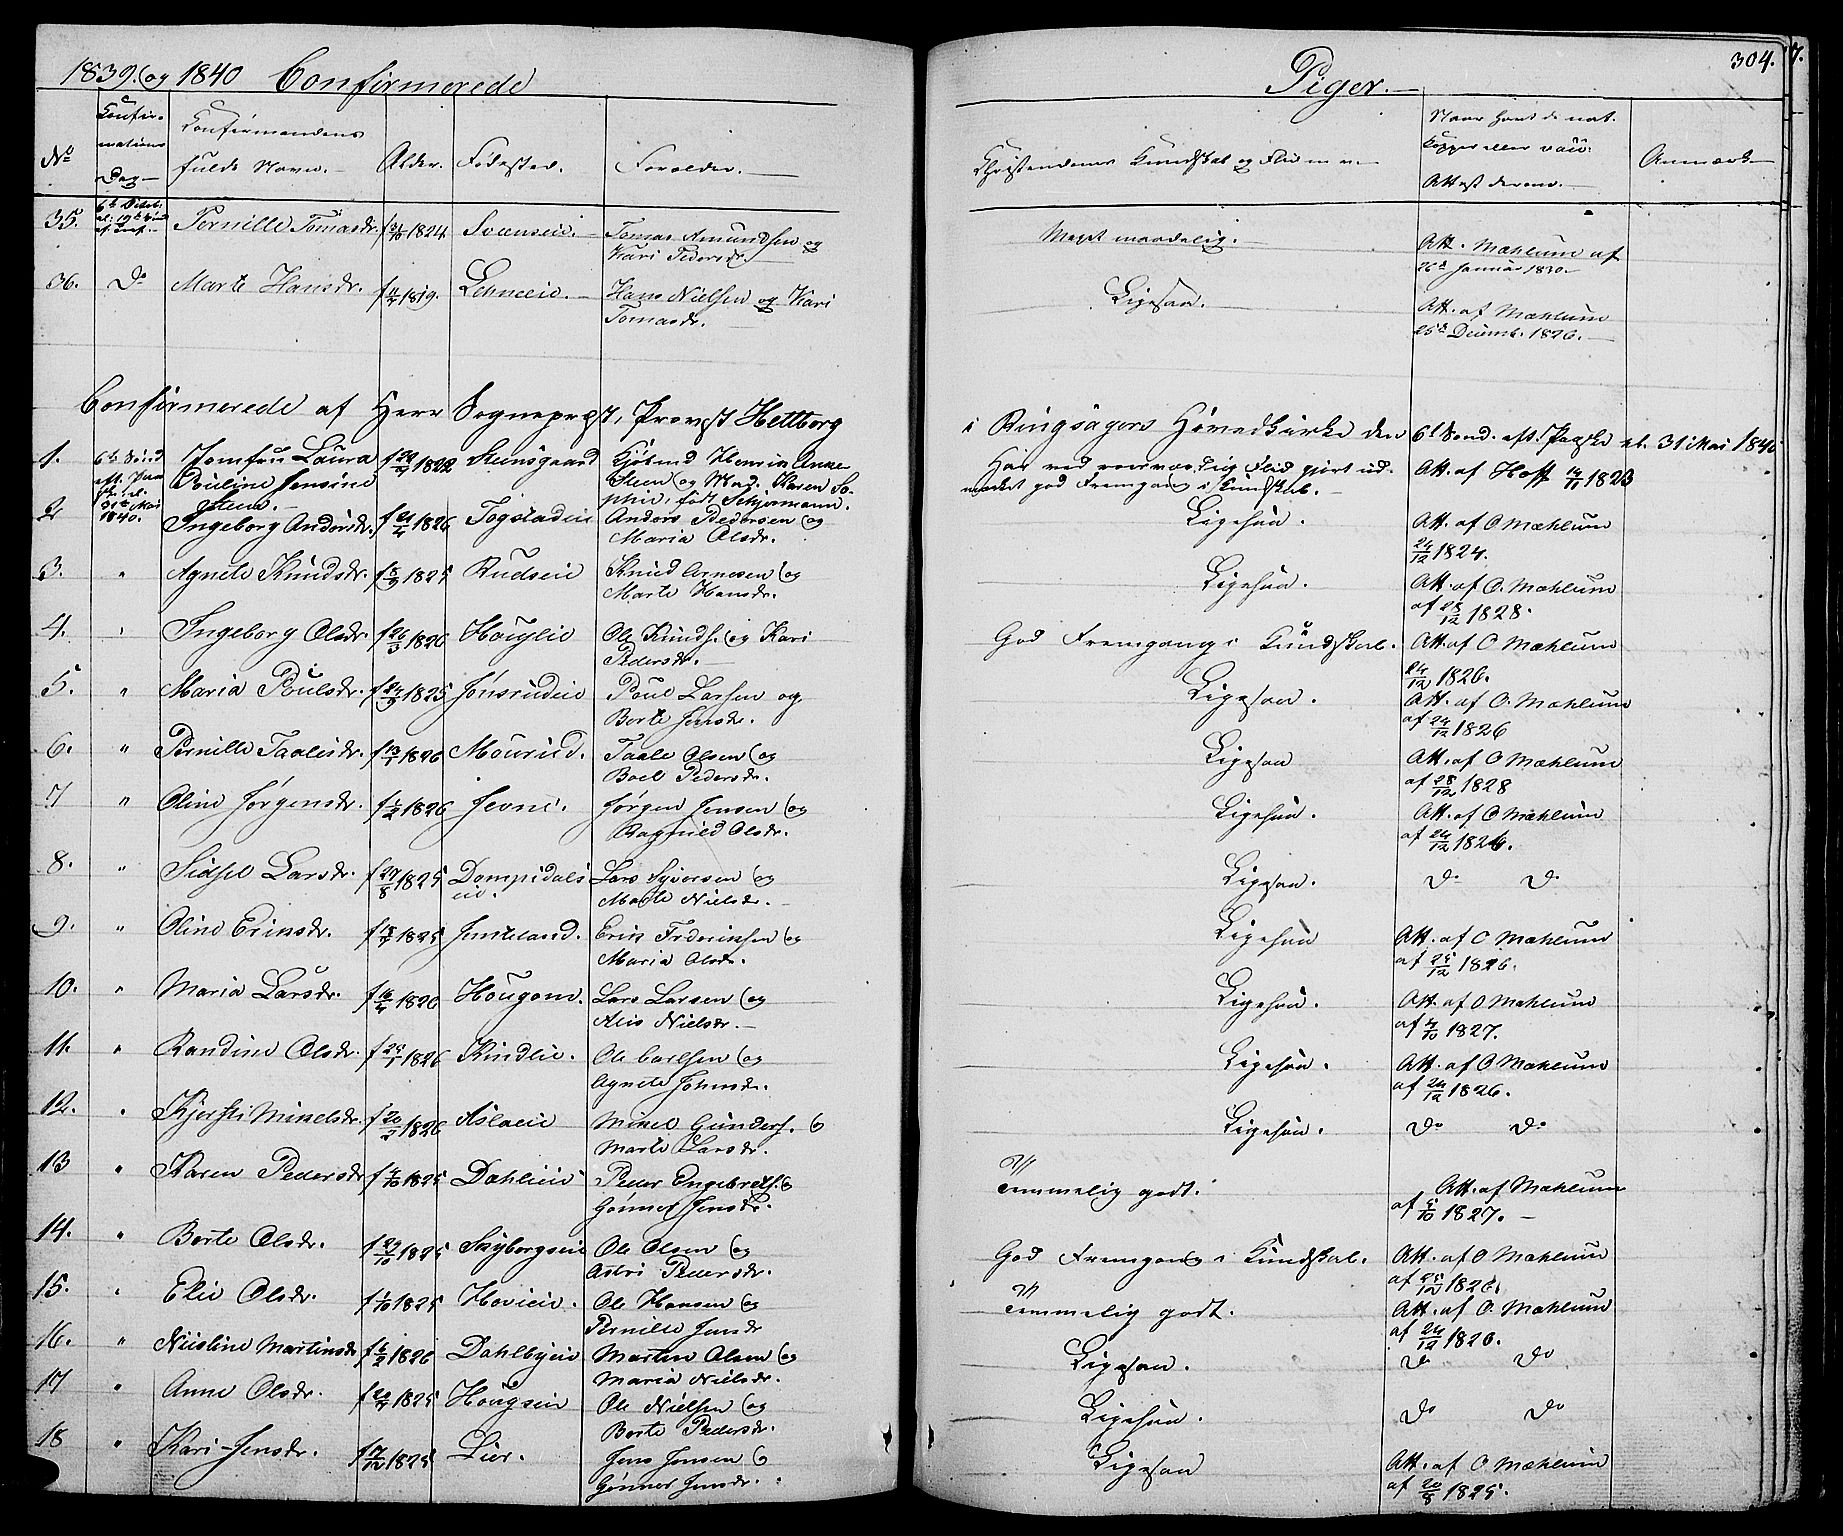 1839. og 1840 Confirmerede
Piger.
304.
7.
No
Confir-
mations
Dag
Confirmandens
fulde Navn.
Alder.
Fødested.
Forældre.
Christendoms Kundskab og Flid m. v.
Naar havt de nat.
Kopper eller vacc:
Attest derom.
Anmærk
35. Pernille Tomasdr. f 1824 Svenseie. Tomas Amundsen og
Kari Pedersdr.
Meget maadelig.
Att. Mæhlum af
26d Januar 1830.
36. Do Marte Hansdr. f 1819. Lehneeie. Hans Nielsen og Kari
Tomasdr.
Ligesaa.
Att. af Mæhlum
25d Decemb. 1826.
Confirmerede af Herr Sognepræst, Provst Heltborg
i Ringsagers Hovedkirke den 6t Sønd. eft. Paaske el. 31 Mai 1840
1. 6te Sønd
eft. Paa
31te Mai
1840.
Jomfru Laura
Pouline Jensine
Steen.
f 1822 Steensgaard Kjøbmd Henrik Anke
Steen og Mad. Karen So-
phie, født Schjørmann.
Har ved roesværdig Flid gjort ud-
mærket god Fremgang i Kundskab.
Att. af Hoff 1823
2 Ingeborg Andersdr. f 1826 Togstadeie Anders Pedersen og
Maria Olsdr.
Ligesaa.
Att. af O Mæhlum
24/12 1824.
3. " Agnete Knudsdr. f 8/9 1825 Rudseie Knud Arnesen og
Marte Hansdr.
Ligesaa.
Att. af O. Mæhlum
af 28/12 1828.
4. " Ingeborg Olsdr. f 26/3 1826 Houglie Ole Knuds. og Kari
Pedersdr.
God Fremgang i Kundskab.
Att. af O Mæhlum
24/12 1826.
5. " Maria Poulsdr. f 24/9 1825 Jønsrudeie Poul Larsen og
Berte Jensdr.
Ligesaa.
Att. af O. Mæhlum
af 24/12 1826
6. " Pernille Taalesdr. f 13/1 1826 Mourud. Taale Olsen og
Boel Pedersdr.
Ligesaa
Att. af O Mæhlum
af 28/12 1828
7 " Oline Jørgensdr. f 1826 Jevne. Jørgen Jensen og
Ragnild Olsdr.
Ligesaa.
Att. af O Mæhlum
af 24/12 1826.
8. " Sidsel Larsdr. f 27/8 1825 Dompidals
eie.
Lars Syversen og
Marte Nielsdr.
Ligesaa.
Do Do
9. " Oline Eriksdr. f 1825 Jemteland. Erik Frderiksen og
Maria Olsdr.
Ligesaa
Att. af O Mæhlum
af 25/12 1826.
10. " Maria Larsdr. f 16/4 1826 Hougom. Lars Larsen og
Alis Nielsdr.
Ligesaa.
Att. af O Mæhlum
af 4/10 1827.
11. " Randine Olsdr. f 1826 Kindlie. Ole Carlsen og
Agnete Johnsdr.
Ligesaa.
Att. af O Mæhlum
af 24/12 1826.
12. " Kjersti Mikelsdr. f 20/2 1826 Aslaeie Mikel Gunders. og
Marte Larsdr.
Ligesaa.
Do Do
13 " Karen Pedersdr f 4/10 1825 Dahlieie Peder Engebrets. og
Gønner Jensdr.
Temmelig godt.
Att. af Mæhlum
af 4/10 1827.
14. " Berte Olsdr. f 29/10 1825 Skyborgseie Ole Olsen og
Astri Pedersdr.
God Fremgang i Kundskab.
Att. af O Mæhlum
af 25/12 1826.
15. " Elie Olsdr. f 1/10 1825 Hovieie. Ole Hansen og
Pernille Jensdr
Temmelig godt.
Att. af O. Mæhlum
af 24/12 1826.
16. " Nicoline Martinsdr f 6/2 1826 Dahlbyeie Martin Olsen og
Maria Nielsdr.
Ligesaa.
Do Do
17 " Anne Olsdr. f 1825 Hougseie Ole Nielsen og
Berte Pedersdr.
Ligesaa.
Do Do
18 " Kari Jensdr. f 7/12 1825 Lier. Jens Jensen og
Gønner Jensdr.
Ligesaa
Att. af O Mæhlum
af 20/8 1825.